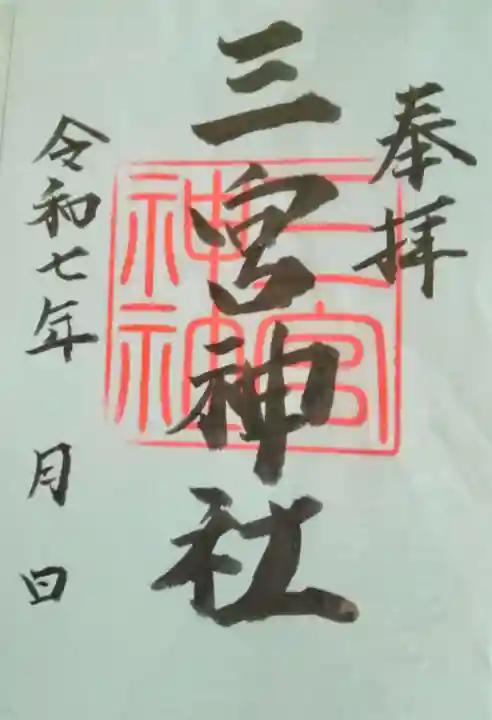 奉拝
三宮神社
三宮
神社
令和七年 月 日